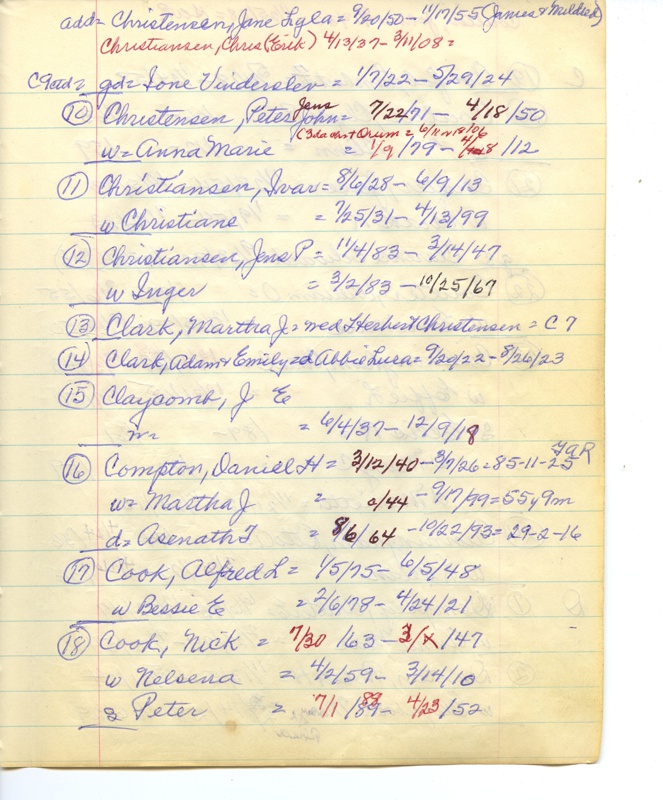 add= Christensen, Jane Ligla = 9/20/50 - 11/17/55 (James & Mildred)
Christiansen, Chris (Erik) 4/13/37 - 3/11/08 =
C9add = gd = Ione Vinderslev = 1/7/22 - 5/29/24
(10) Christensen, Peter Jens John = 7/22/71 - 4/18/50
(3da Orum = 6/11 18/06
w = Anna Marie = 1/9/79 - /12
(11) Christiansen, Ivar = 8/6/28 - 6/9/13
w Christiane = 7/25/31 - 4/13/99
(12) Christiansen, Jens P = 11/4/83 - 3/14/47
w Inger = 3/2/83 - 10/25/67
(13) Clark, Martha J = wed Herbert Christensen = C 7
(14) Clark, Adam + Emily = d Abbie Luca = 9/20/22 - 8/26/23
(15) Claycomb, J E
= 6/4/37 - 12/9/18
GAR
(16) Compton, Daniel H = 3/12/40 - 3/7/26 = 85-11-25
w = Martha J = c/44 - 9/17/99 = 55y 9m
d = Asenath T = 8/6/64 - 10/22/93 = 29-2-16
(17) Cook, Alfred L = 1/5/75 - 6/5/48
w Bessie E = 2/6/78 - 4/24/21
(18) Cook, Nick = 7/30/63 - 3/x/47
w Nelsena = 4/2/59 - 3/14/10
s Peter = 7/1/89 - 4/23/52